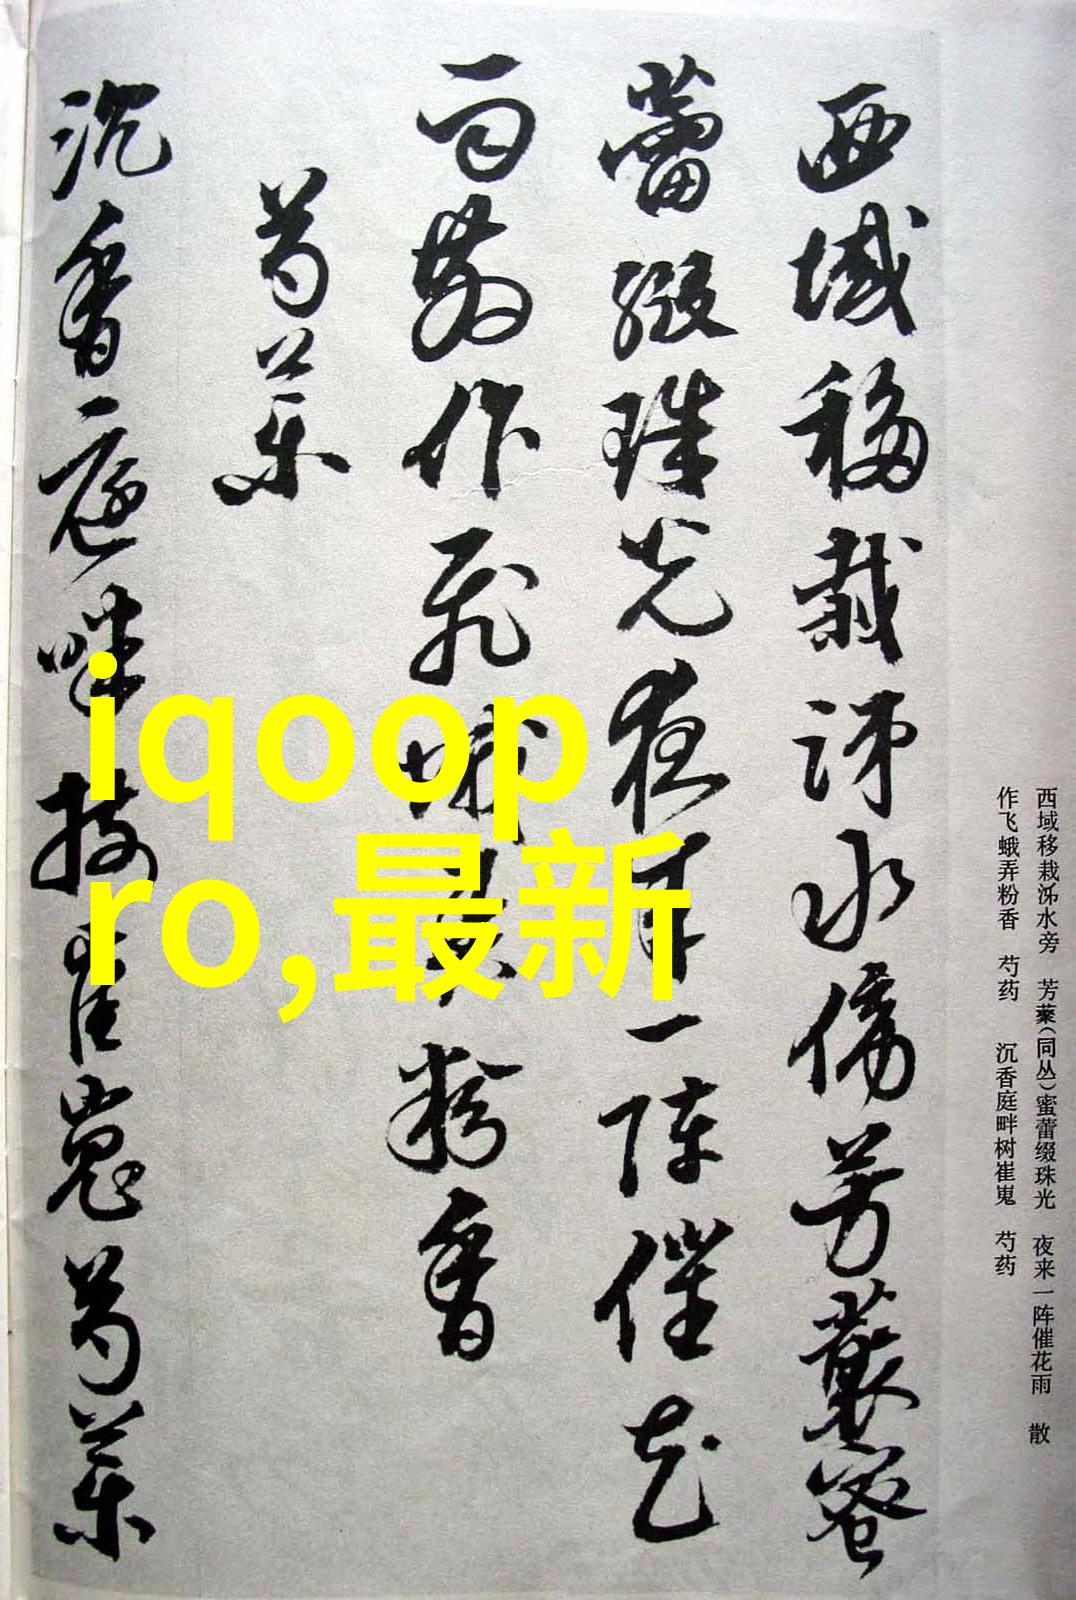 西域移栽沵水傍芳藂蜜
蕾缀珠光夜来一阵催花
雨散作飞蛾弄粉香
芍药
沉香庭畔树崔嵬芍药
西域移栽沵水旁 芳藂(同丛)蜜蕾缀珠光 夜来一阵催花雨 散
作飞蛾弄粉香 芍药 沉香庭畔树崔嵬 芍药
iqoop
ro,最新